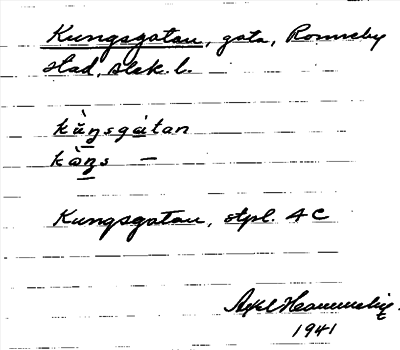 Kungsgatan, gata, Ronneby
stad, Blek. l.
kùŋsgátan
kòŋs —
Kungsgatan, stpl. 4C
Axel Hammarling.
1941